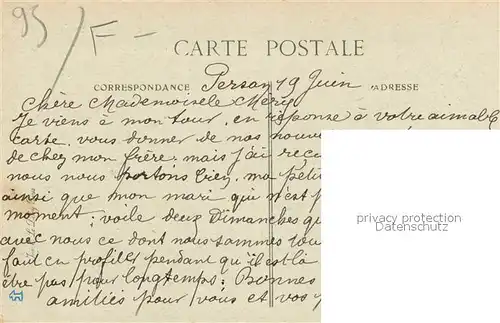 95/F-
CARTE POSTALE
CORRESPONDANCE
ADRESSE
Persan 19 Juin
Chère Mademoiselle Méry
Je viens à mon tour, en réponse à votre aimable
carte, vous donner de nos
de chez mon frère, mais j'ai
nous nous portons bien, ma
ainsi que mon mari qui n'est
moment; voile deux Dimanches
avec nous ce dont nous sommes
faut en profiter pendant qu'il est là
être pas pour longtemps; Bonnes
amitiés pour vous et vos
privacy protection
Datenschutz